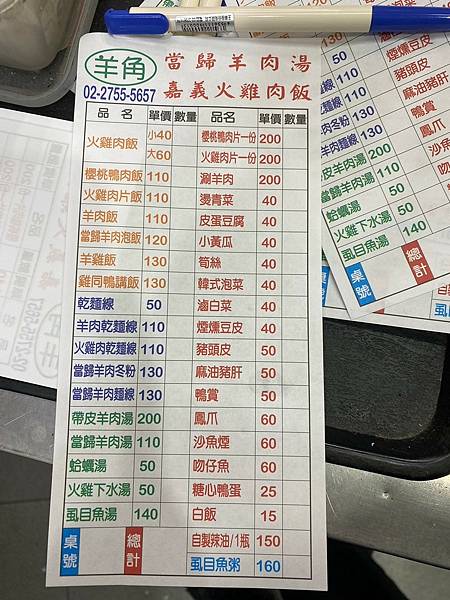 羊角 當歸羊肉湯
02-2755-5657 嘉義火雞肉飯
品名 單價 數量 品名 單價 數量
火雞肉飯 小40 櫻桃鴨肉片一份 200
大60 火雞肉片一份 200
櫻桃鴨肉飯 110 涮羊肉 200
火雞肉片飯 110 燙青菜 40
羊肉飯 110 皮蛋豆腐 40
當歸羊肉泡飯 120 小黃瓜 40
羊雞飯 130 筍絲 40
雞同鴨講飯 130 韓式泡菜 40
乾麵線 50 滷白菜 40
羊肉乾麵線 110 煙燻豆皮 40
火雞肉乾麵線 110 豬頭皮 50
當歸羊肉冬粉 130 麻油豬肝 50
當歸羊肉麵線 130 鴨賞 50
帶皮羊肉湯 200 鳳爪 60
當歸羊肉湯 110 沙魚煙 60
蛤蠣湯 50 吻仔魚 60
火雞下水湯 50 糖心鴨蛋 25
虱目魚湯 140 白飯 15
桌號 總計 自製辣油/1瓶 150
虱目魚粥 160
煙燻豆皮
110 豬頭皮
110 麻油豬肝
130 鴨賞
130 鳳爪
200 沙魚
110 吻仔
蛤蠣湯 50
火雞下水湯 50
虱目魚湯 140
桌號 總計